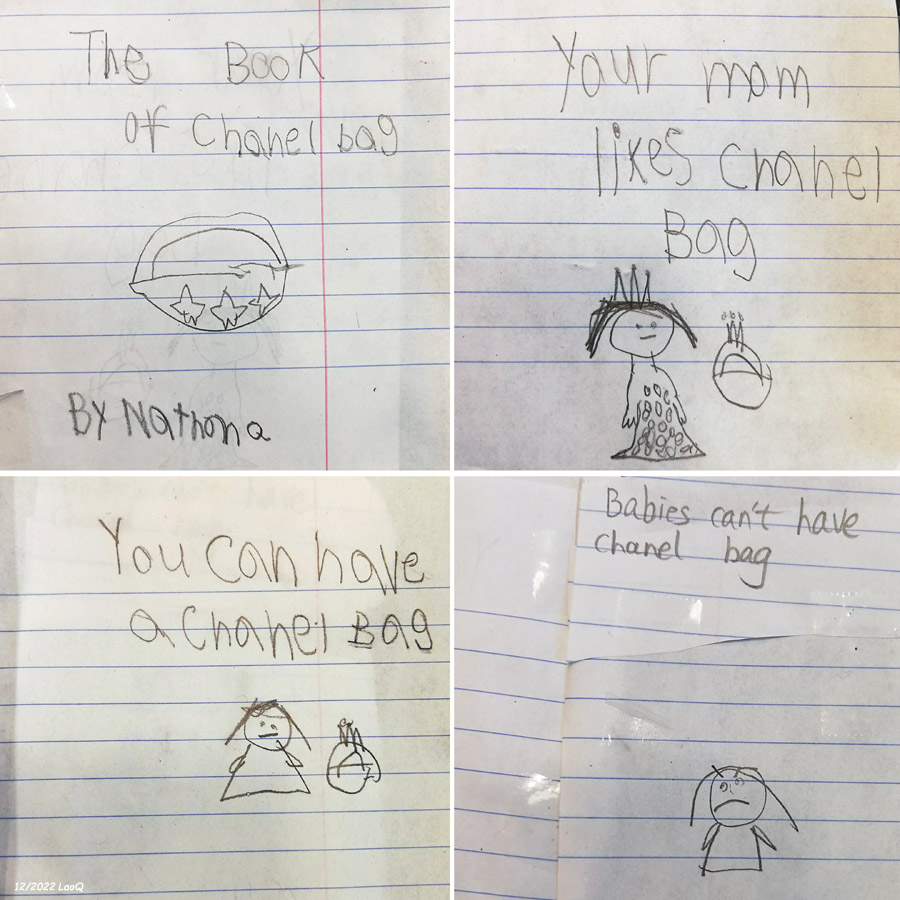 The Book
of Chanel bag
By Nathona
Your mom
likes Chanel
Bag
You can have
a Chanel Bag
Babies can't have
chanel bag
12/2022 LaoQ